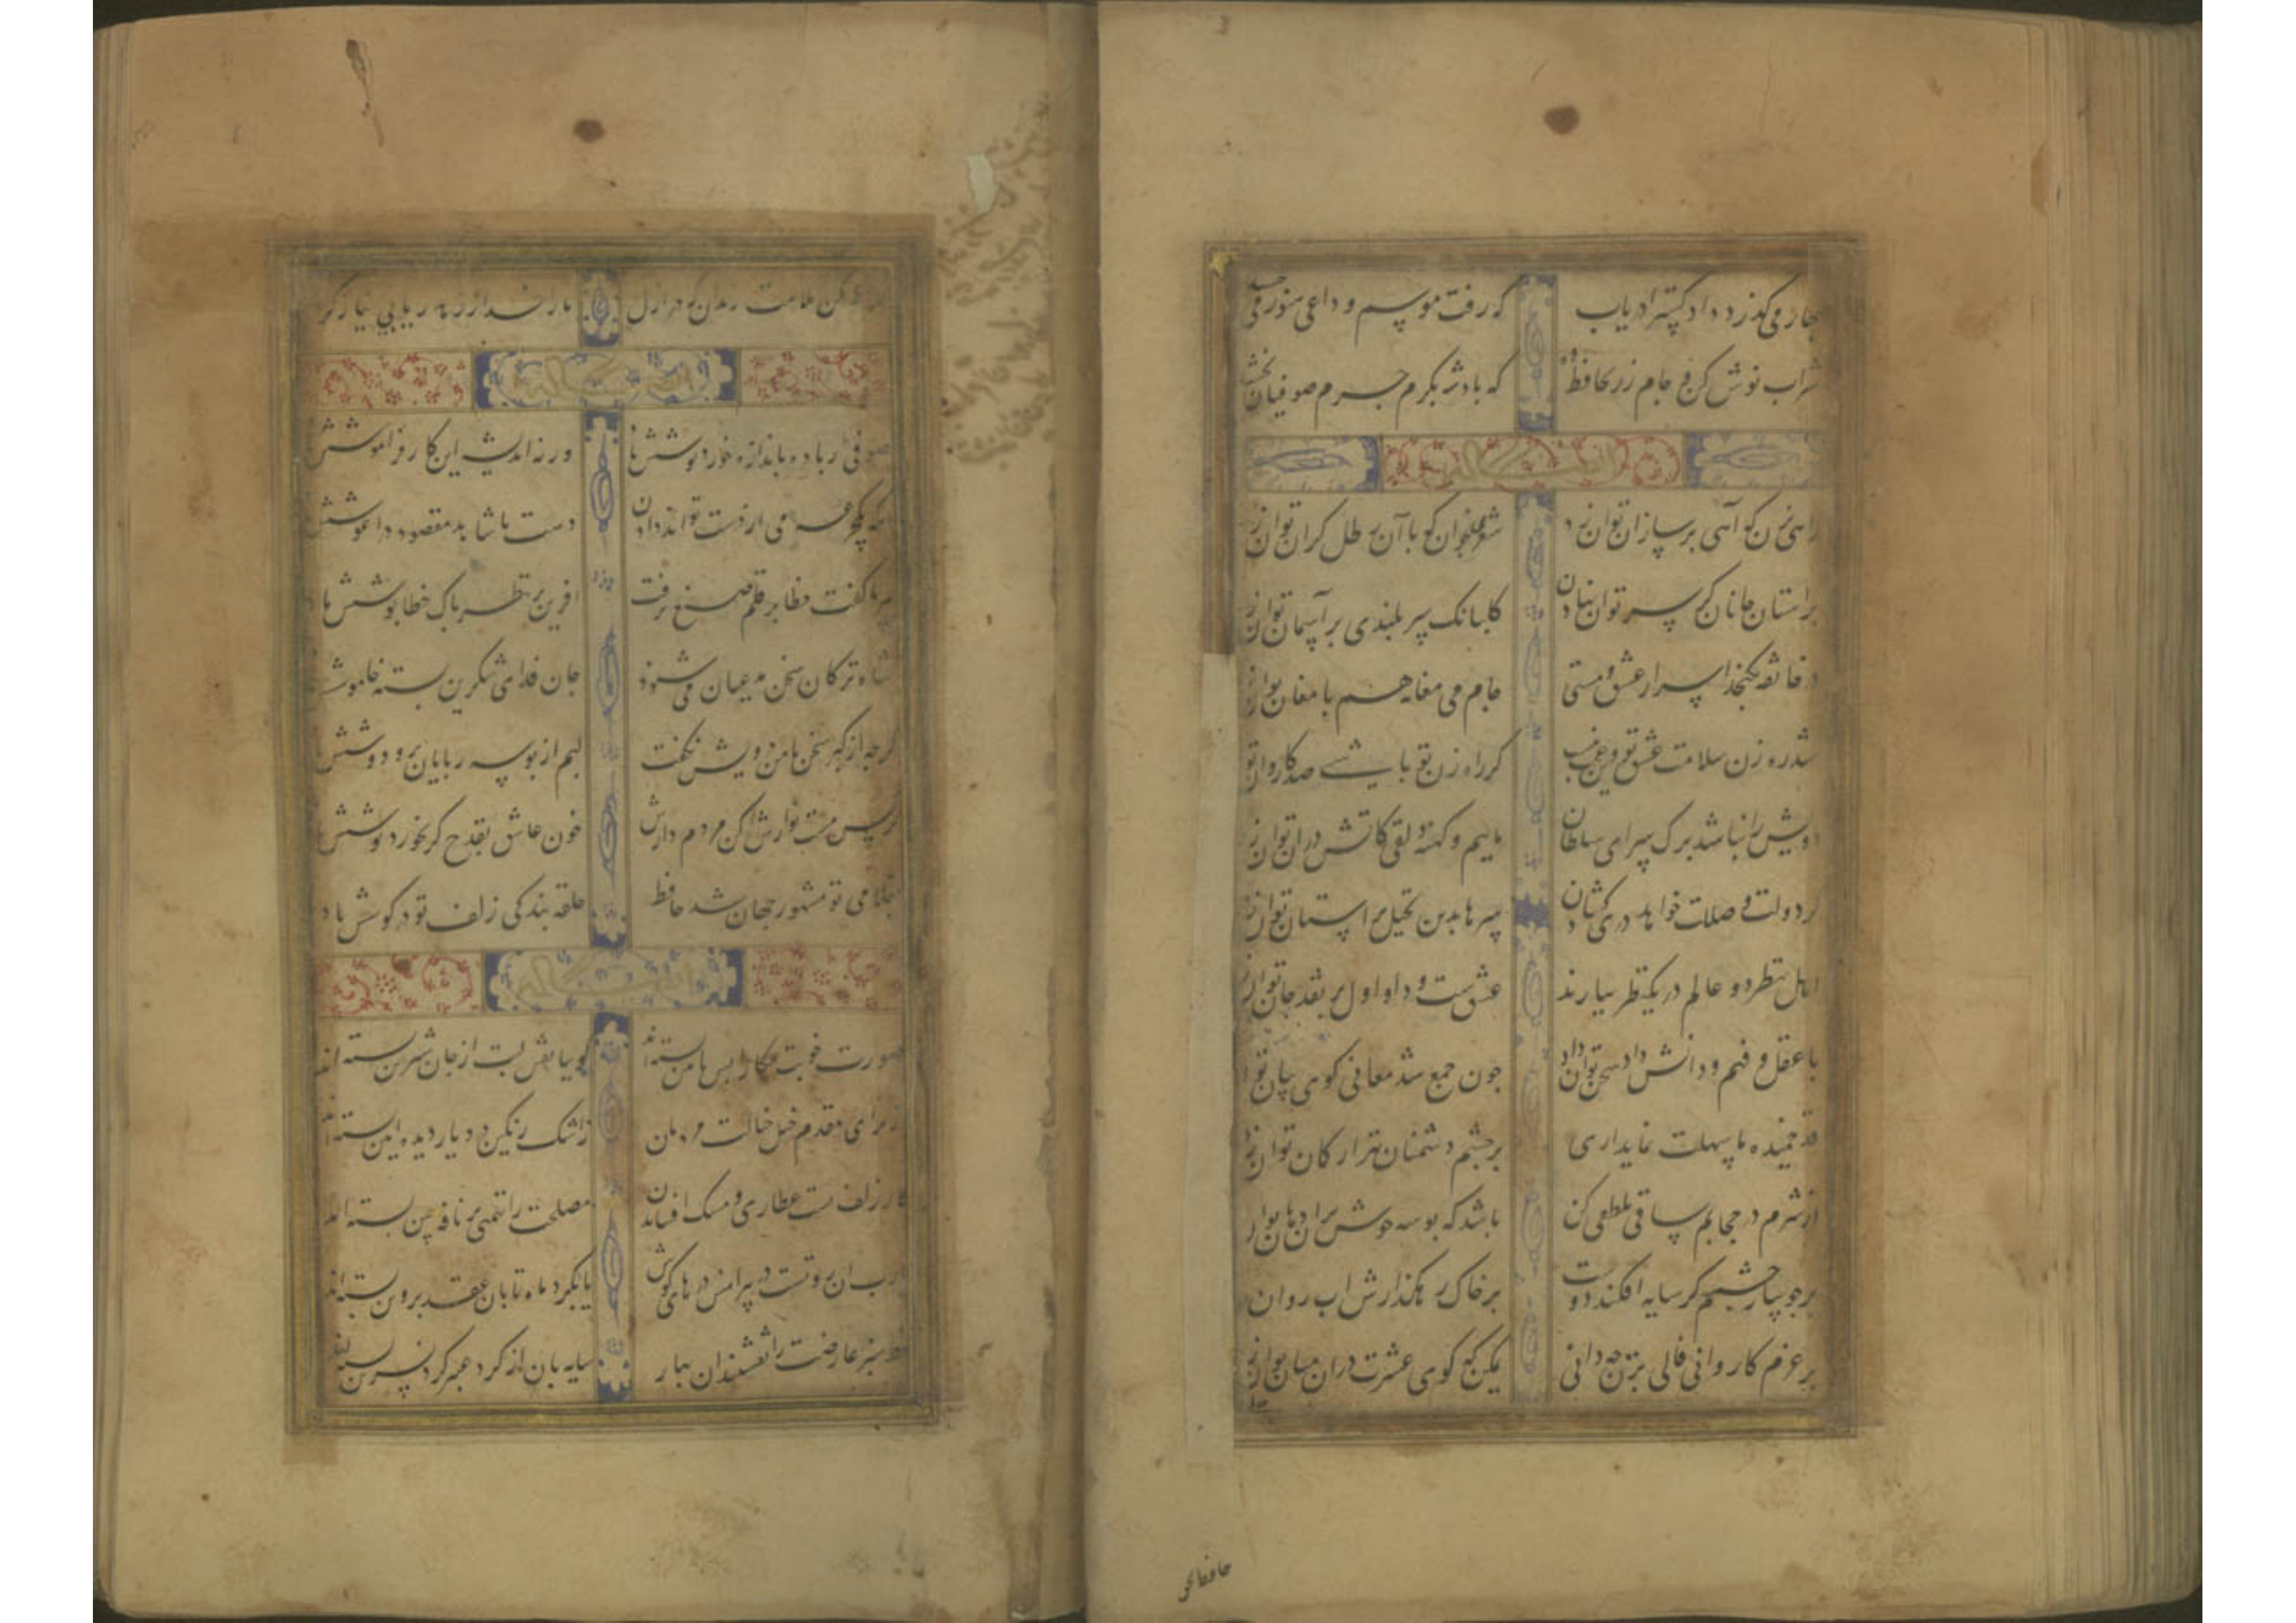 مجاز می گذرد داد گسترا دریاب
که رفت موسم و داعی هنوز می
شراب نوش کن و جام زر بحافظ ده
که بادشه بکرم جرم صوفیان بخشید
راهی زن که آهی بر ساز ان توان زد
شعری بخوان که با آن رطل کران توان زد
بر استان جانان کر سر توان نهادن
کلبانک سر بلندی بر آسمان توان زد
در خانقه نکنجد اسرار عشق و مستی
جام می مغانه هم با مغان توان زد
شد ره زن سلامت عشق تو وین عجب نیست
کر راه زن تو باشی صد کاروان توان
درویش را نباشد برک سرای سلطان
ماییم و کهنه دلقی کاتش دران توان زد
کر دولت وصلت خواهد دری کشادن
سرها بدین تخیل بر استان توان زد
اهل نظر دو عالم در یک نظر ببازند
عشق است و داو اول بر نقد جان توان زد
با عقل و فهم و دانش داد سخن توان داد
جون جمع شد معانی کوی بیان توان
قد خمیده ما سهلت نماید اری
بر جشم دشمنان تیر از کان توان زد
از شرم در حجابم ساقی تلطفی کن
باشد که بوسه جوش بران دهان توان
بر جویبار جشمم کر سایه افکند دوست
بر خاک رهکذارش اب روان
بر عزم کاروانی فالی بزن جه دانی
یمکن که کوی عشرت دران میان توان زد
حافظا مکن ملامت رندان که در ازل
ما را خدا ز زهد ریا بی نیاز کرد
صوفی ار باده باندازه خورد نوشش باد
ورنه اندیشه این کار فراموشش
انکه یک جرعه می از دست تواند دادن
دست با شاهد مقصود در اغوشش
پیر ما کفت خطا بر قلم صنع نرفت
افرین بر نظر پاک خطا پوشش باد
شاه ترکان سخن مدعیان می شنود
جان فدای شکرین بسته خاموشش
کرجه از کبر سخن با من درویش نکفت
لبم از بوسه ربایان بر و دوشش
نرکس مست نوازش کن مردم دارش
خون عاشق بقدح کر بخورد نوشش
بغلامی تو مشهور جهان شد حافظ
حلقه بندکی زلف تو در کوشش باد
صورت خوبت نکارا بس بایین بسته اند
کوییا نقش لبت از جان شیرین بسته اند
از برای مقدم خیل خیالت مردمان
ز اشک رنکین در دیار دیده ایین بسته اند
کار زلف تست عطاری و مسک افشاندن
مصلحت را تهمتی بر نافه چین بسته اند
یارب ان رویست در پیرامنش درهای کوش
یا بکرد ماه تابان عقد پروین بسته اند
خط سبز عارضت را نقشبندان بهار
سایه بان از کرد عنبر کرد نسرین بسته اند